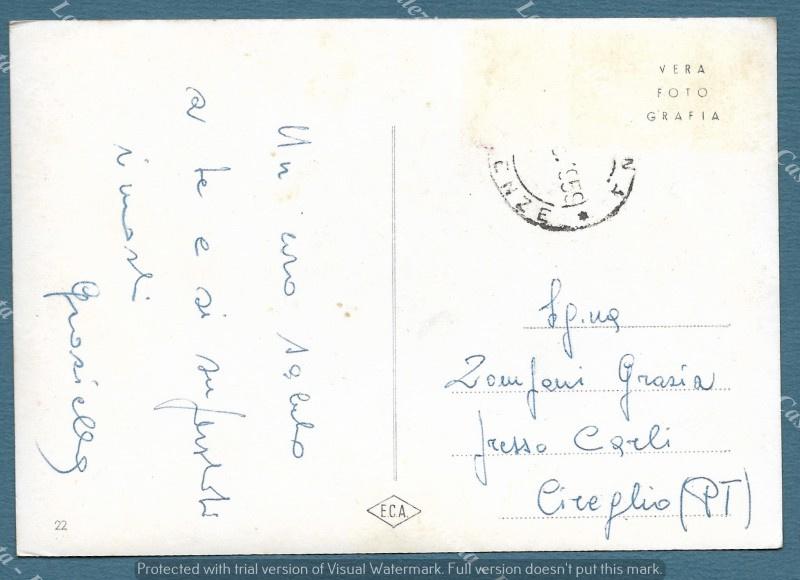 VERA
FOTO
GRAFIA
ENZE
Un caro saluto
a te e ai superstiti
rimasti
Graziella
Sg.na
Zomfani Grazia
presso Carli
Cireglio (PT)
E.C.A.
22
Protected with trial version of Visual Watermark. Full version doesn't put this mark.